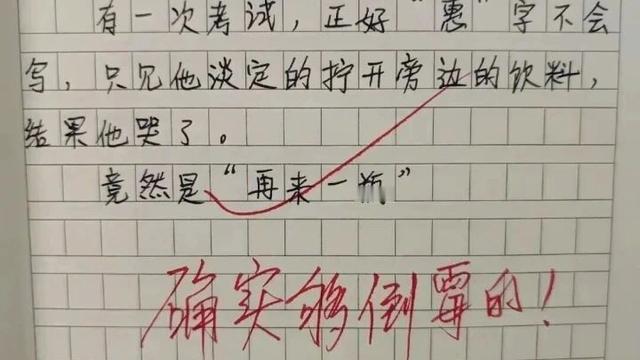 有一次考试，正好“惠”字不会
写，只见他淡定的拧开旁边的饮料，
结果他哭了。
竟然是“再来一瓶”
确实够倒霉的！